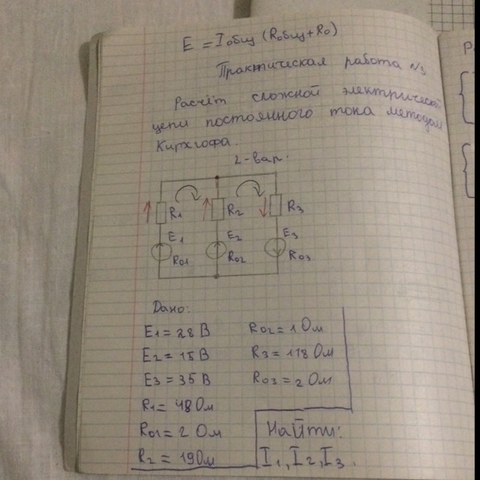 E = Iобщ (Rобщ + R0)
Практическая работа №3
Расчёт сложной электрической
цепи постоянного тока методом
Кирхгофа.
2-вар.
R1 R2 R3
E1 E2 E3
R01 R02 R03
Дано:
E1 = 28 В
E2 = 15 В
E3 = 35 В
R1 = 48 Ом
R01 = 2 Ом
R2 = 19 Ом
R02 = 1 Ом
R3 = 118 Ом
R03 = 2 Ом
Найти:
I1, I2, I3.